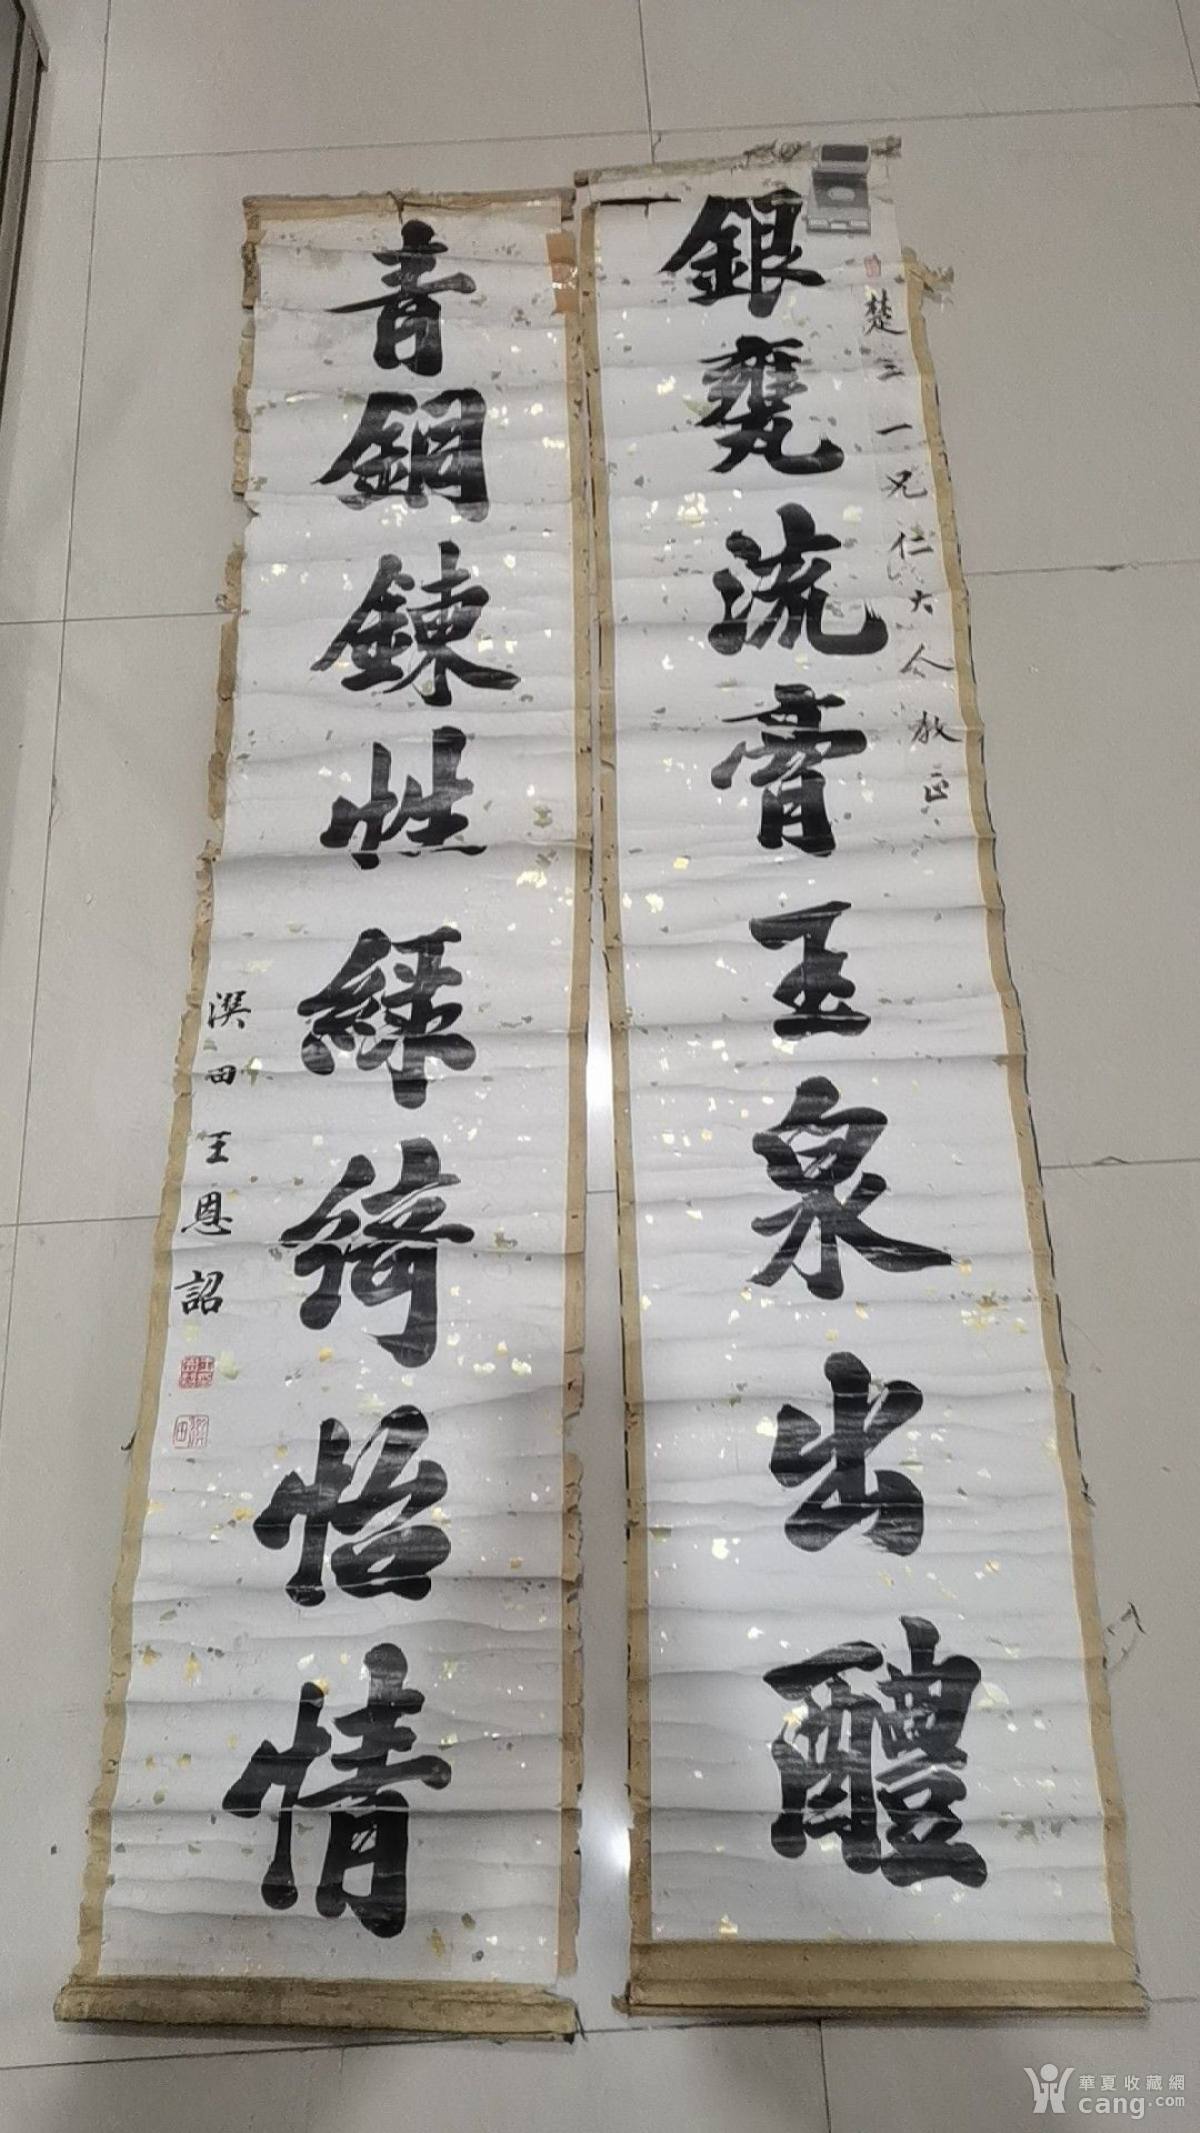 銀甕流膏玉泉出醴
楚三一兄仁大人教正
青銅鍊性綠綺怡情
潠田王恩詔
潠田
華夏收藏網
cang.com